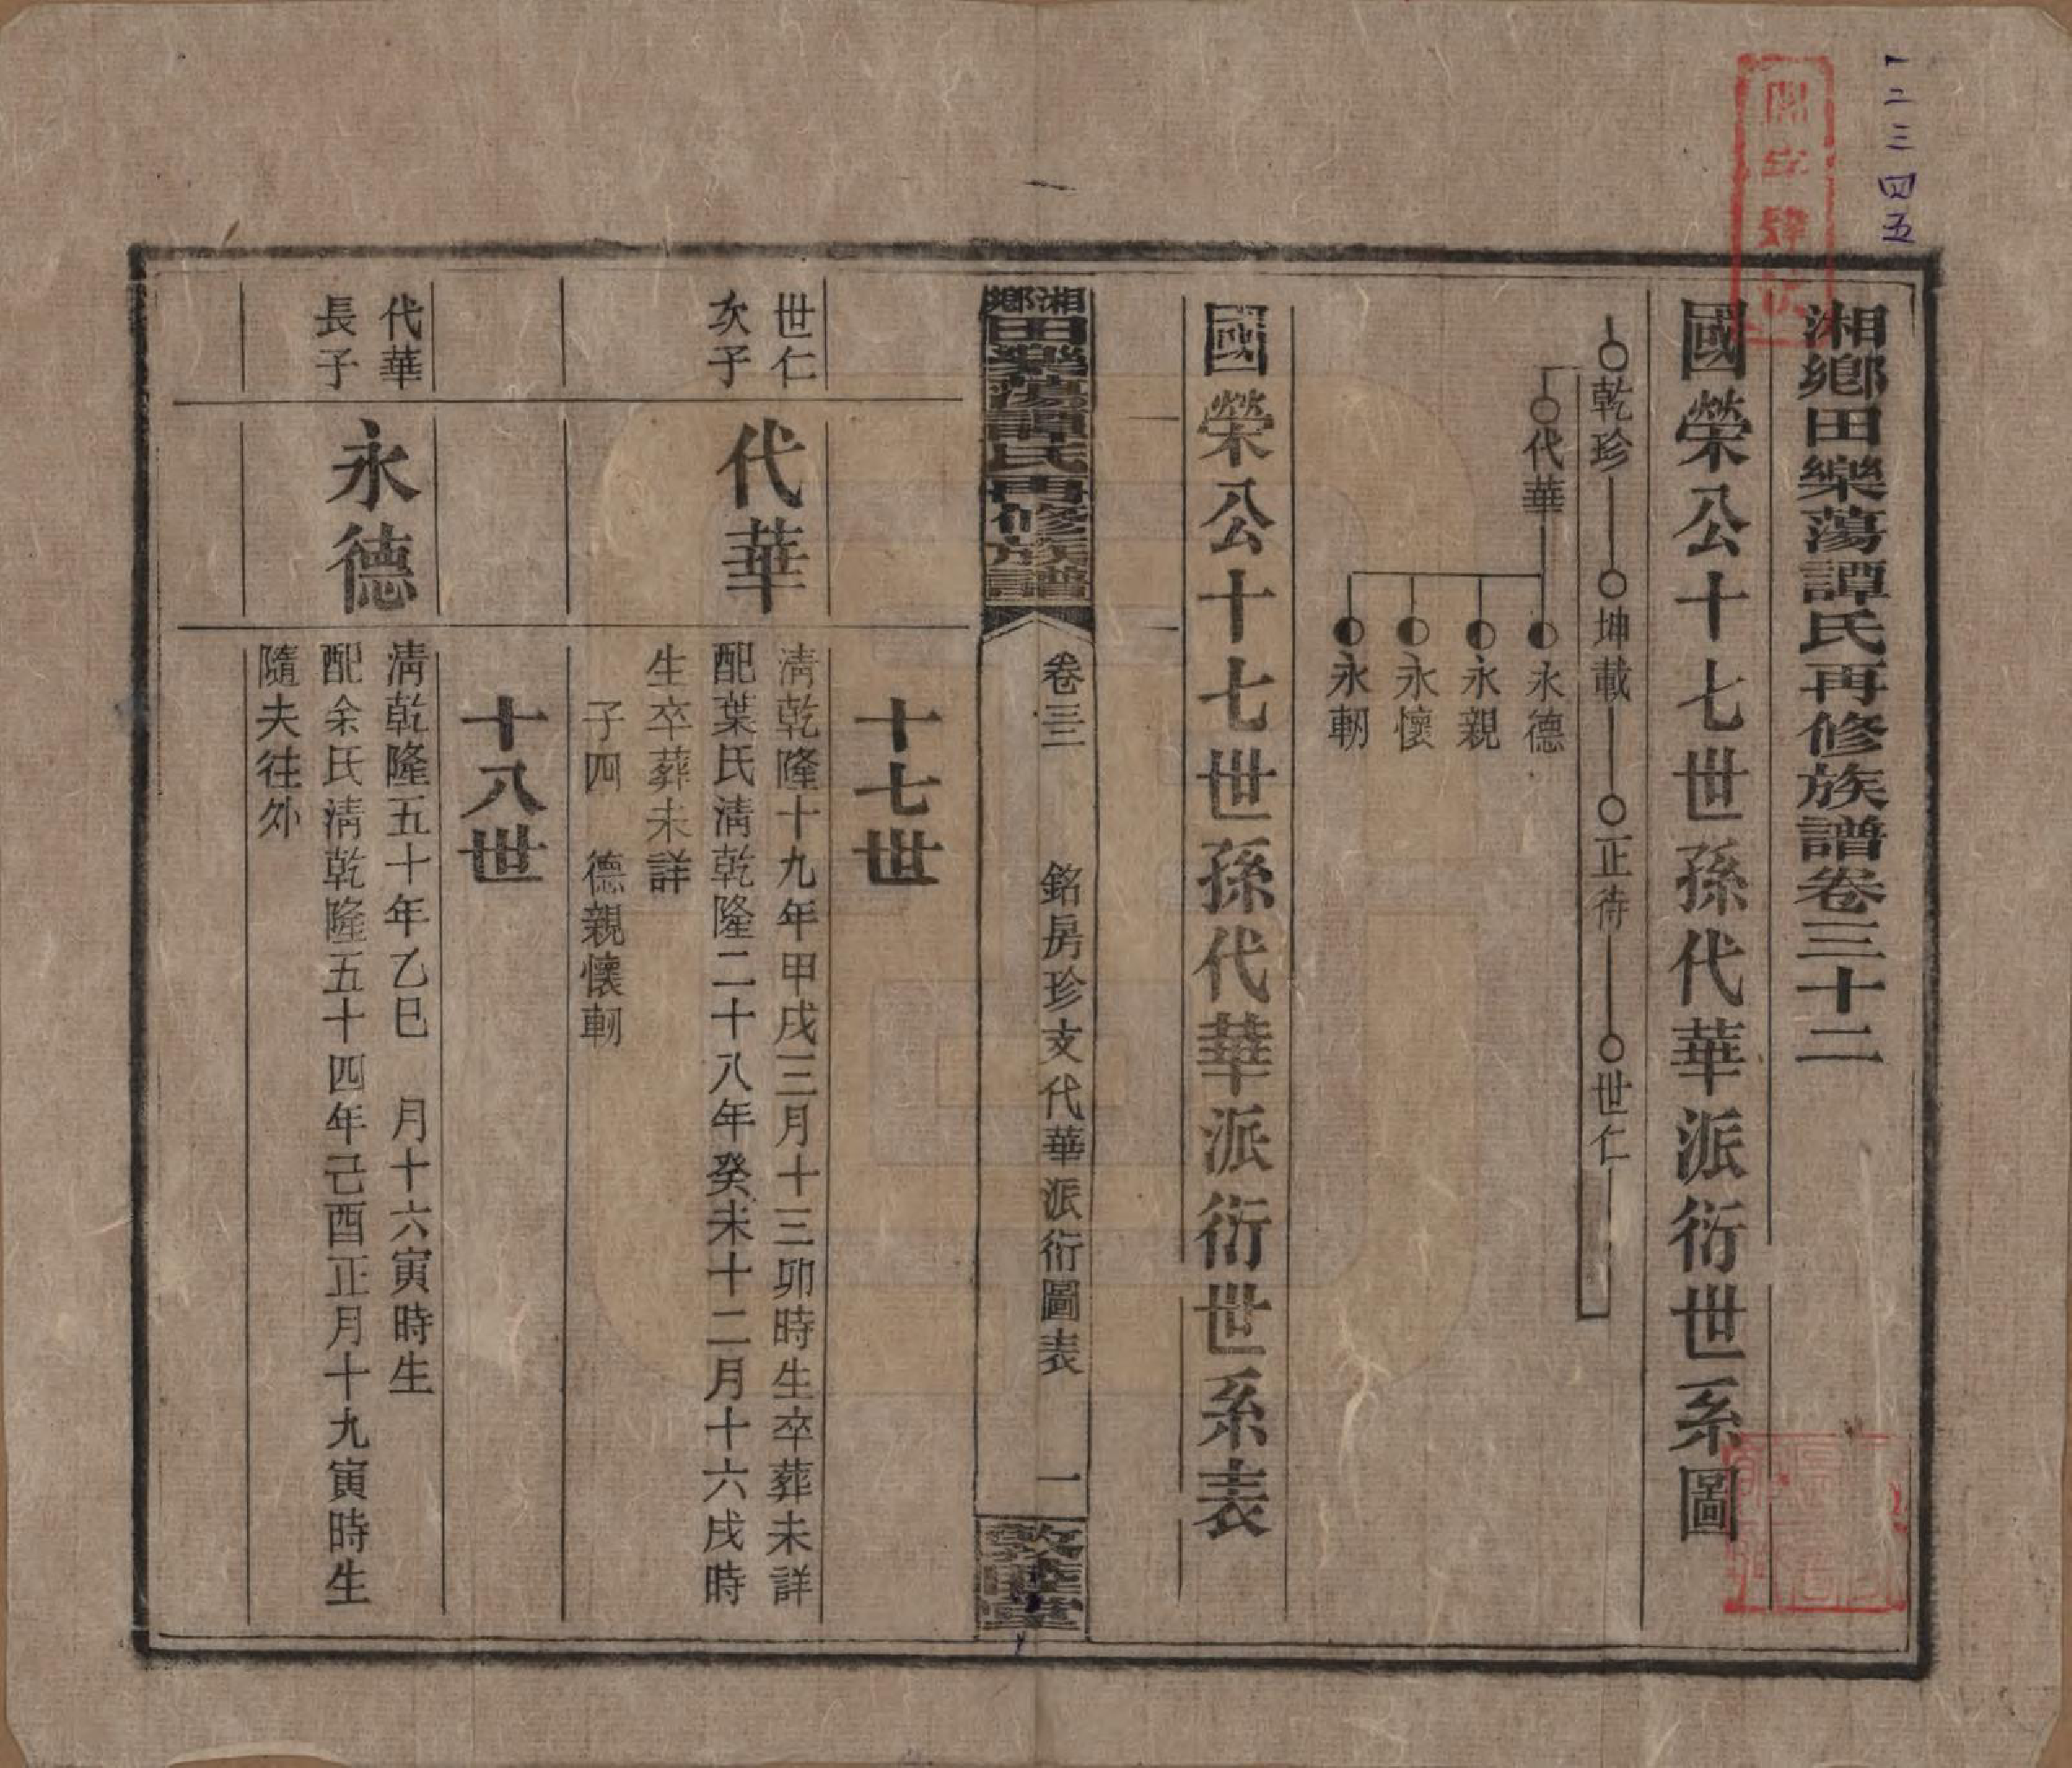 一二三四五
湘鄉田樂蕩譚氏再修族譜卷三十二
國榮公十七世孫代華派衍世系圖
乾珍 坤載 正待 世仁
代華
永德
永親
永懷
永軔
國榮公十七世孫代華派衍世系表
湘鄉田樂蕩譚氏再修族譜 卷三三 銘房珍支代華派衍圖表 一 敦睦堂
十七世
世仁
次子
代華
清乾隆十九年甲戌三月十三卯時生卒葬未詳
配葉氏清乾隆二十八年癸未十二月十六戌時
生卒葬未詳
子四 德親懷軔
十八世
代華
長子
永德
清乾隆五十年乙巳 月十六寅時生
配余氏清乾隆五十四年己酉正月十九寅時生
隨夫往外